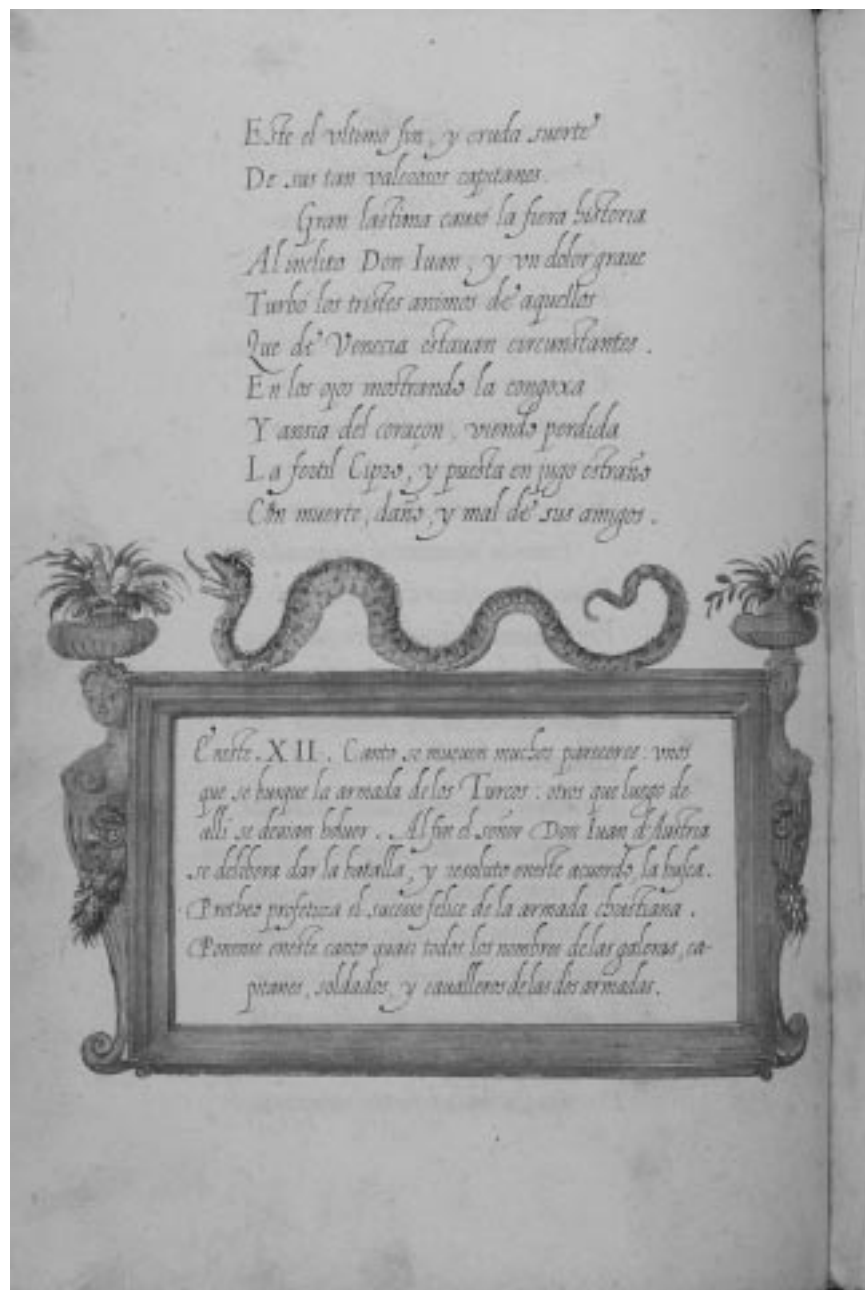 Este el vltimo fin, y cruda suerte
De sus tan valerosos capitanes.
Gran lastima causó la fiera historia
Al inclito Don Iuan, y vn dolor graue
Turbó los tristes animos de aquellos
Que de Venecia estauan circunstantes.
En los ojos mostrando la congoxa
Y ansia del coraçon, viendo perdida
La fertil Cipro, y puesta en jugo estraño
Con muerte, daño, y mal de sus amigos.
Eneste. XII. Canto se mueuen muchos pareceres: vnos
que se busque la armada de los Turcos: otros que luego de
alli se deuian boluer. Al fin el señor Don Iuan d'Austria
se delibera dar la batalla, y resoluto eneste acuerdo, la busca.
Proteo profetiza el sucesso felice de la armada christiana.
Ponense eneste canto quasi todos los nombres de las galeras, ca-
pitanes, soldados, y caualleros de las dos armadas.